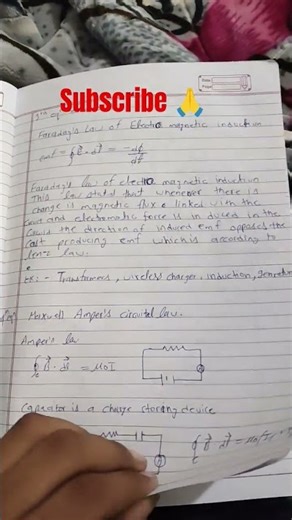 Subscribe 🙏
Date
Page
Faraday's Law of Electro magnetic induction
emf = ∮ E · dl = -dφ/dt
Faraday's law of electro magnetic induction
This law stated that whenever there is
change in magnetic flux linked with the
and electromotic force is in duced in the
the direction of induced emf opposes the
producing emf which is according to
law.
Ex: - Transformers, wireless charger, induction,
Maxwell Amper's circuital law.
Amper's la
∮ B · dl = μ0I
c
Capacitor is a charge storing device